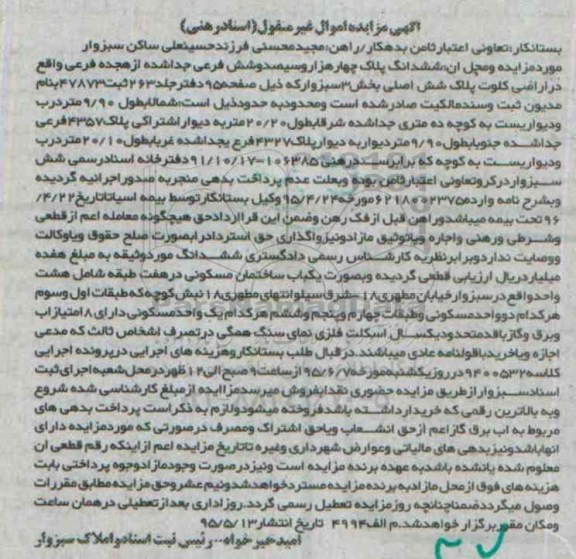 آگهی مزایده اموال غیر منقول (اسناد رهنی)
بستانکار: تعاونی اعتبار ثامن بدهکار/راهن: مجید محسنی فرزند حسینعلی ساکن سبزوار
مورد مزایده ومحل ان: ششدانگ پلاک چهارهزاروسیصدوشش فرعی جداشده ازهجده فرعی واقع
در اراضی کلوت پلاک شش اصلی بخش ۳ سبزوارکه ذیل صفحه ۹۵ دفتر جلد ۲۶۳ ثبت ۴۷۸۷۳ بنام
مدیون ثبت وسندمالکیت صادرشده است ومحدودبه حدودذیل است: شمالابطول ۹/۹۰ متردرب
ودیواریست به کوچه ده متری جداشده شرقابطول ۲۰/۲۰ متربه دیواراشتراکی پلاک ۴۳۵۷ فرعی
جداشده جنوبابطول ۹/۹۰ متردیواربه دیوارپلاک ۴۳۲۷ فرع یجداشده غربابطول ۲۰/۱۰ متردرب
ودیواریست به کوچه که برابرسند رهنی ۱۰۶۳۸۵-۹۱/۱۰/۱۷ دفترخانه اسنادرسمی شش
سبزواردرکروتعاونی اعتبارثامن بوده وبعلت عدم پرداخت بدهی منجربه صدوراجرائیه گردیده
وبشرح نامه وارده ۶۲۱۸۰۰۲۳۷۵ مورخه ۹۵/۴/۲۴ وکیل بستانکارتوسط بیمه اسیاتاتاریخ ۴/۲۲/
۹۶ تحت بیمه میباشدوراهن قبل ازفک رهن وضمن این قراردادحق هیچگونه معامله اعم ازقطعی
وشرطی ورهنی واجاره ویاتوثیق مازادونیزواگذاری حق استرداد رابصورت صلح حقوق ویاوکالت
ووصیت نداردوبرابرنظریه کارشناس رسمی دادگستری ششدانگ موردوثیقه به مبلغ هفده
میلیاردریال ارزیابی قطعی گردیده وبصورت یکباب ساختمان مسکونی درهفت طبقه شامل هشت
واحدواقع درسبزوارخیابان مطهری ۱۸-شرق سیلوانتهای مطهری ۱۸ نبش کوچه که طبقات اول وسوم
هرکدام دوواحدمسکونی وطبقات چهارم وپنجم وششم هرکدام یک واحدمسکونی دارای ۸ امتیازاب
وبرق وگازباقدمتحدودیکسال اسکلت فلزی نمای سنگ همگی درتصرف اشخاص ثالث که مدعی
اجازه ویاخریدباقولنامه عادی میباشند.درقبال طلب بستانکاروهزینه های اجرایی درپرونده اجرایی
کلاسه ۹۴۰۰۵۳۲ درروزیکشنبه مورخه ۹۵/۶/۷ ازساعت ۹ صبح الی ۱۲ ظهردرمحل شعبه اجرای ثبت
اسنادسبزوارازطریق مزایده حضوری نقدابفروش میرسدمزاایده ازمبلغ کارشناسی شده شروع
وبه بالاترین رقمی که خریدارداشته باشدفروخته میشودولازم به ذکراست پرداخت بدهی های
مربوط به اب برق گازاعم ازحق انشعاب ویاحق اشتراک ومصرف درصورتی که موردمزایده دارای
انهاباشدونیزبدهی های مالیاتی وعوارض شهرداری وغیره تاتاریخ مزایده اعم ازاینکه رقم قطعی ان
معلوم شده یانشده باشدبه عهده برنده مزایده است ونیزدرصورت وجودمازادوجوه پرداختی بابت
هزینه های فوق ازمحل مازادبه برنده مزایده مستردخواهدشدونیم عشروحق مزایده مطابق مقررات
وصول میگرددضمناچنانچه روزمزایده تعطیل رسمی گردد.روزاداری بعدازتعطیلی درهمان ساعت
ومکان مقرربرگزارخواهدشد.م الف ۴۹۹۴ تاریخ انتشار ۹۵/۵/۱۳
امیدخیرخواه..رئیس ثبت اسنادواملاک سبزوار